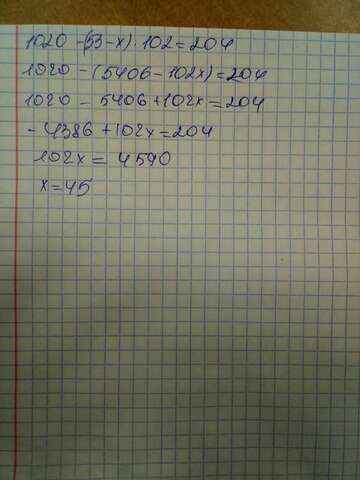 1020 - (53 - x) · 102 = 204
1020 - (5406 - 102x) = 204
1020 - 5406 + 102x = 204
- 4386 + 102x = 204
102x = 4590
x = 45